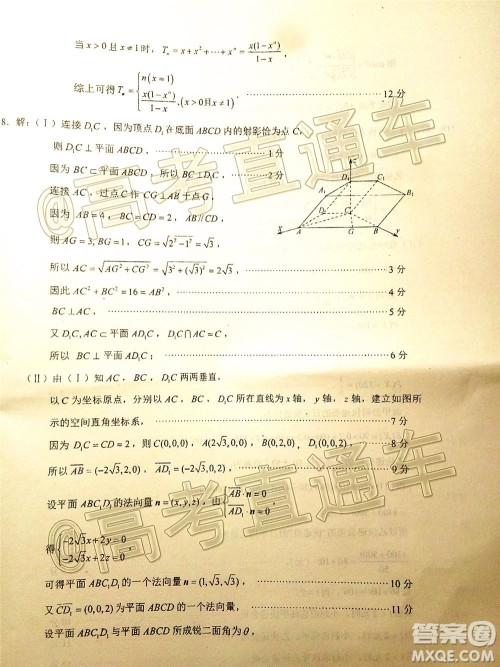 当 x>0 且 x≠1 时, Tₙ = x + x² + ⋯ + xⁿ = x(1−xⁿ)/(1−x),
综上可得 Tₙ = { n(x=1) ; x(1−xⁿ)/(1−x), (x>0且x≠1) ………12 分
8. 解:(Ⅰ)连接 D₁C, 因为顶点 D₁ 在底面 ABCD 内的射影恰为点 C,
则 D₁C⊥平面 ABCD, ………1 分
因为 BC⊂平面 ABCD, 所以 BC⊥D₁C, ………2 分
连接 AC, 过点 C 作 CG⊥AB 于点 G,
因为 AB=4, BC=CD=2, AB//CD,
则 AG=3, BG=1, CG=√(2²−1²)=√3,
所以 AC=√(AG²+CG²)=√(3²+(√3)²)=2√3, ………3 分
因此 AC²+BC²=16=AB², ………4 分
BC⊥AC, ………5 分
又 D₁C, AC⊂平面 AD₁C, D₁C∩AC=C,
所以 BC⊥平面 AD₁C; ………6 分
z
D₁
C₁
A₁
B₁
D
C
x
A
G
B
y
(Ⅱ)由(Ⅰ)知 AC, BC, D₁C 两两垂直,
以 C 为坐标原点, 分别以 AC, BC, D₁C 所在直线为 x 轴, y 轴, z 轴, 建立如图所
示的空间直角坐标系, ………7 分
因为 D₁C=CD=2, 则 C(0,0,0), A(2√3,0,0), B(0,2,0), D₁(0,0,2), ………8 分
所以 AB=(−2√3,2,0), AD₁=(−2√3,0,2), ………9 分
设平面 ABC₁D₁ 的法向量 n=(x,y,z), 由 { AB·n=0 ; AD₁·n=0
得 { −2√3x+2y=0 ; −2√3x+2z=0
可得平面 ABC₁D₁ 的一个法向量 n=(1,√3,√3), ………10 分
又 CD₁=(0,0,2) 为平面 ABCD 的一个法向量, ………11 分
设平面 ABC₁D₁ 与平面 ABCD 所成锐二面角为 θ,
@高考直通车
@高考直通车
答案圈
MXQE.COM